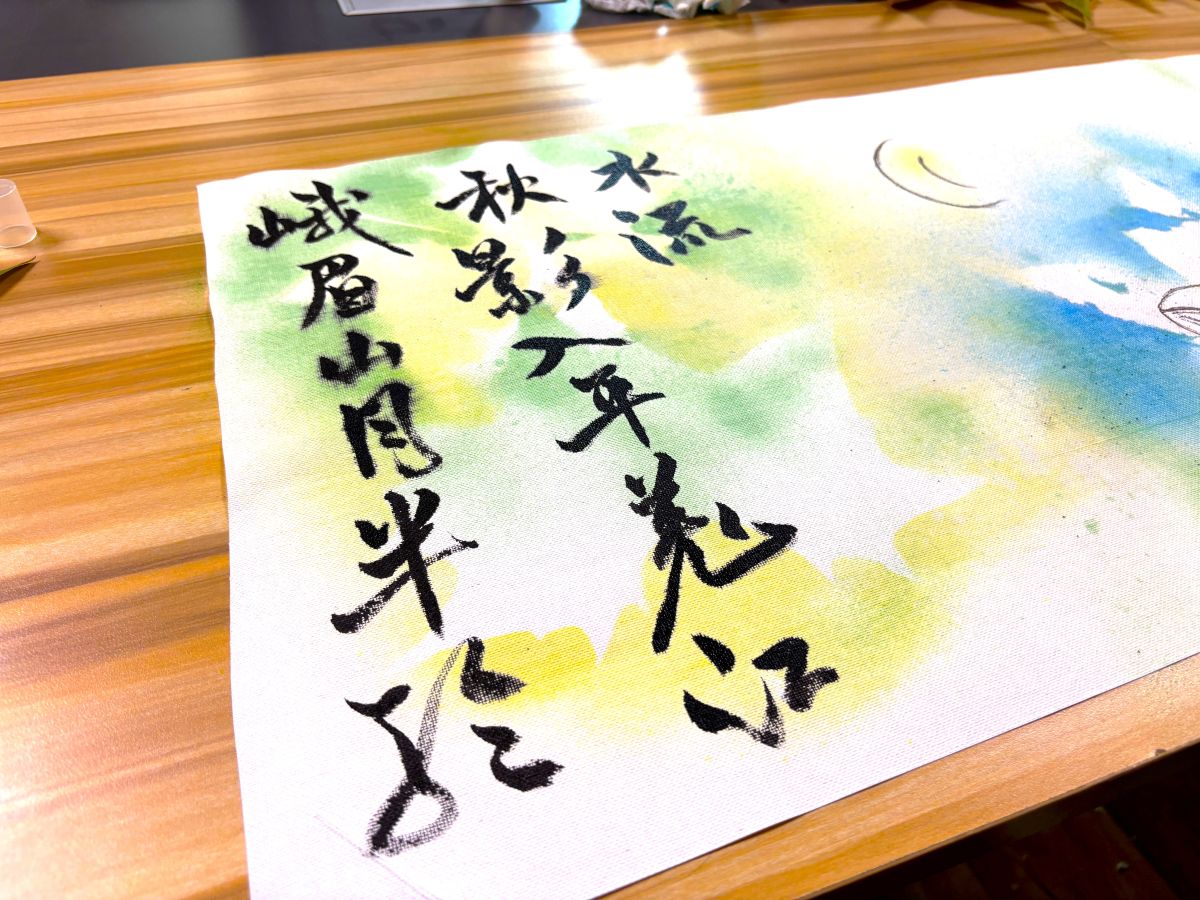 峨眉山月半轮
秋影入平羌江
水流